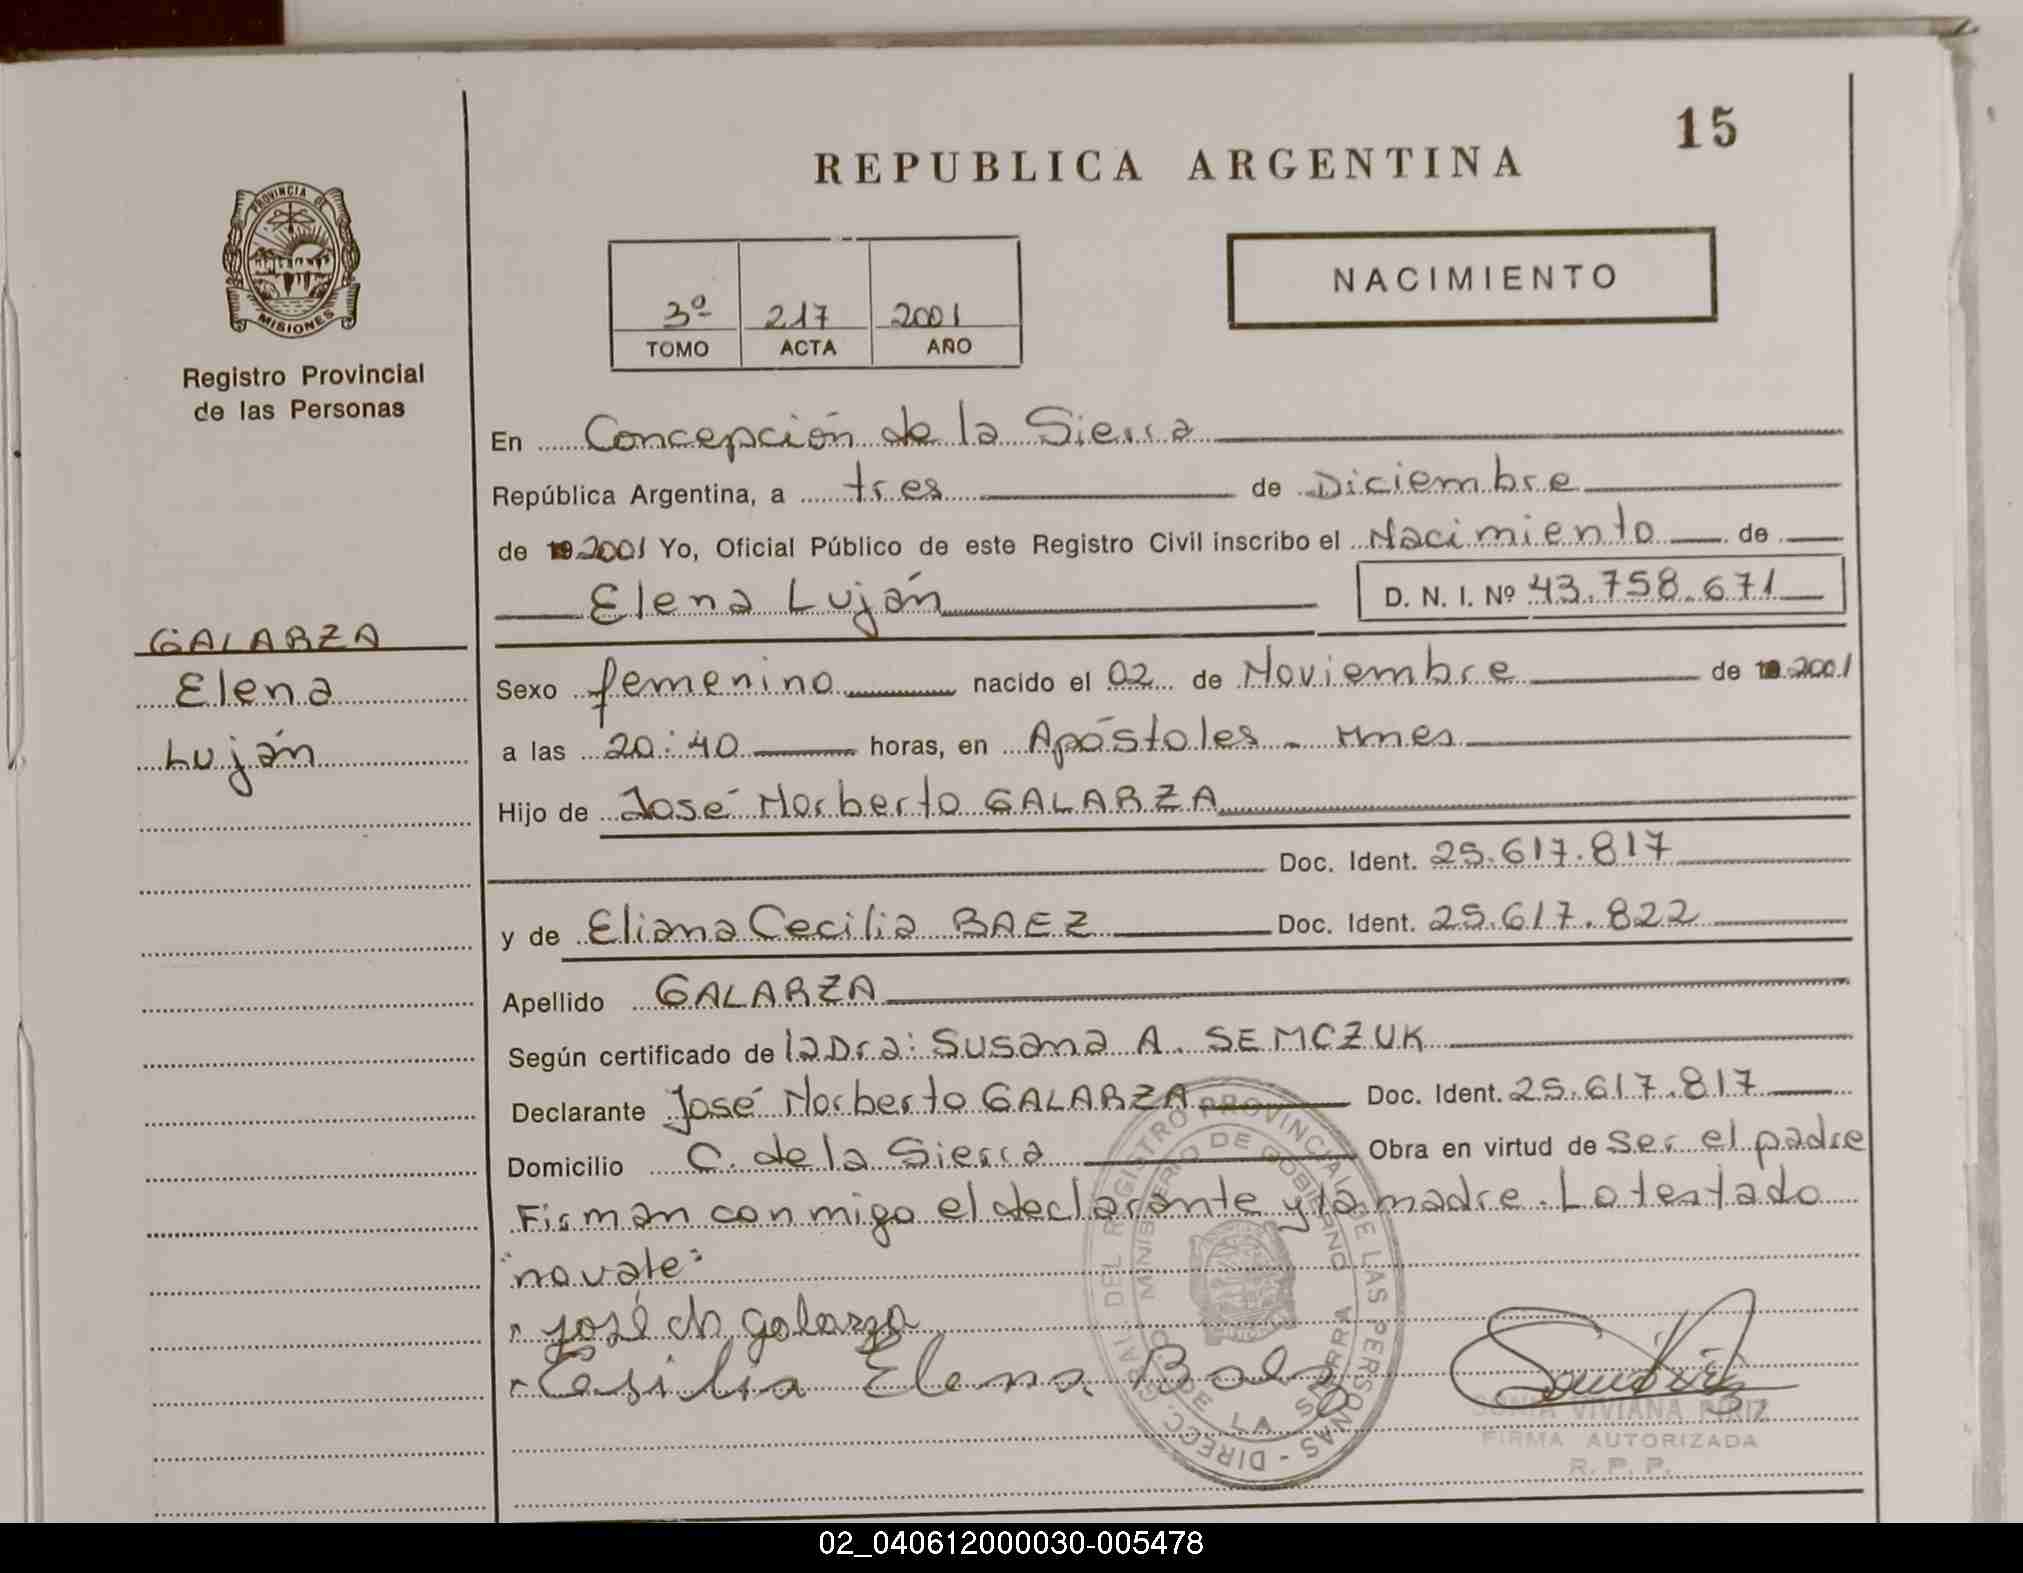 15
REPUBLICA ARGENTINA
PROVINCIA DE
MISIONES
Registro Provincial
de las Personas
NACIMIENTO
3º 217 2001
TOMO ACTA AÑO
En Concepción de la Sierra
República Argentina, a tres de Diciembre
de 19 2001 Yo, Oficial Público de este Registro Civil inscribo el Nacimiento de
Elena Luján D. N. I. Nº 43.758.671
GALARZA
Elena
Luján
Sexo femenino nacido el 02 de Noviembre de 19 2001
a las 20:40 horas, en Apóstoles - Mnes
Hijo de José Norberto GALARZA
Doc. Ident. 25.617.817
y de Eliana Cecilia BAEZ Doc. Ident. 25.617.822
Apellido GALARZA
Según certificado de la Dra: Susana A. SEMCZUK
Declarante José Norberto GALARZA Doc. Ident. 25.617.817
Domicilio C. de la Sierra Obra en virtud de ser el padre
Firman conmigo el declarante y la madre. Lo testado
"no vale"
José N galarza
Cesilia Elena
DIRECC. GRAL. DEL REGISTRO PROVINCIAL DE LAS PERSONAS -
MINISTERIO DE GOBIERNO
DE LA SIERRA
SONIA VIVIANA PIRIZ
FIRMA AUTORIZADA
R. P. P.
02_040612000030-005478